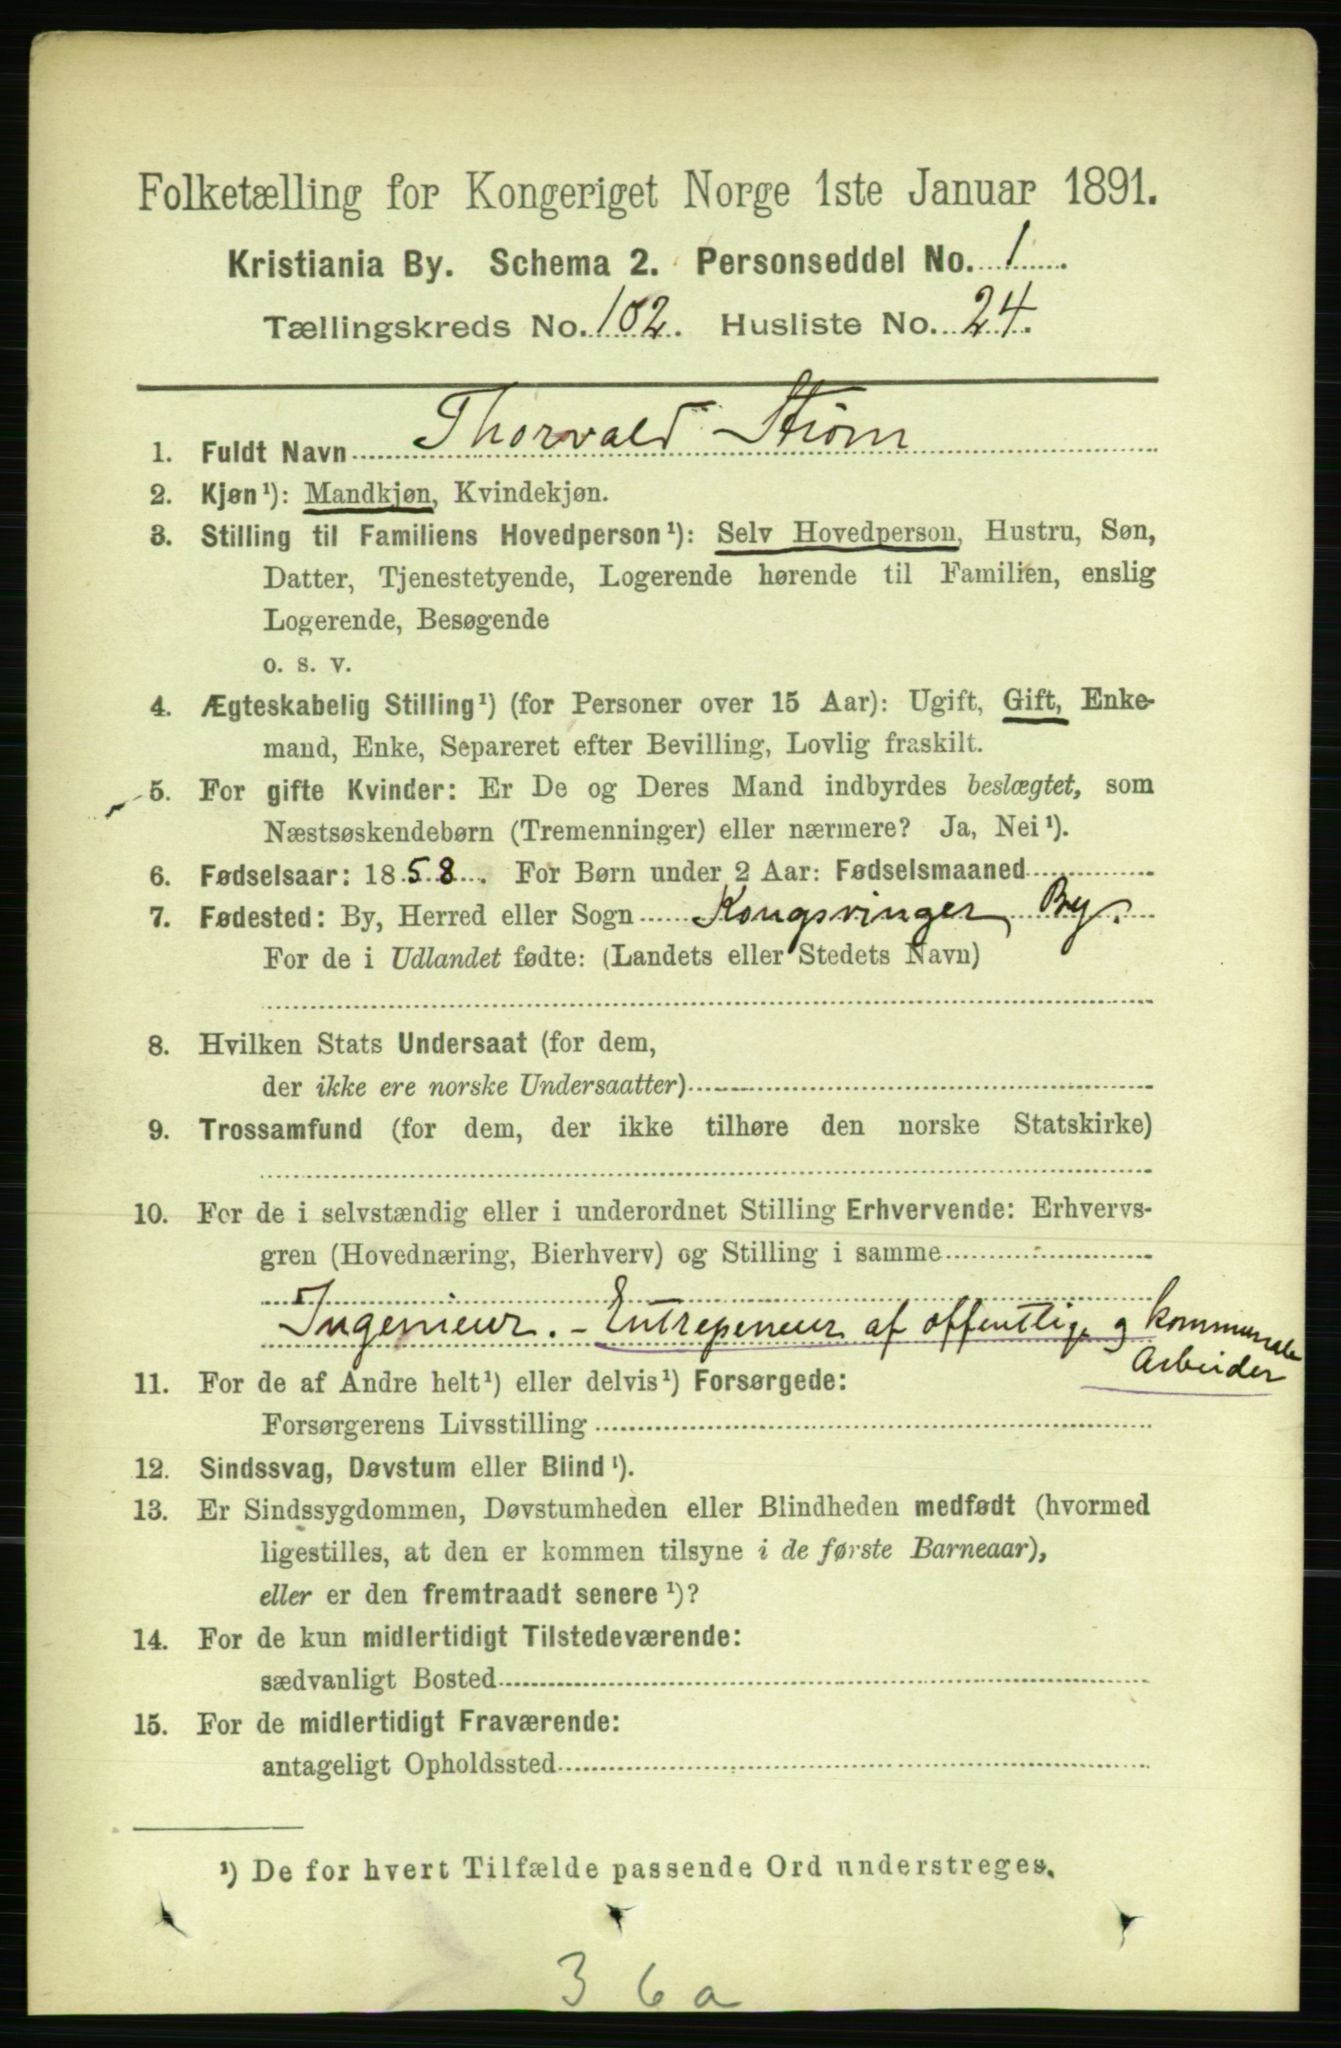 Folketælling for Kongeriget Norge 1ste Januar 1891.
Kristiania By. Schema 2. Personseddel No. 1
Tællingskreds No. 102. Husliste No. 24.
1. Fuldt Navn Thorvald Strøm
2. Kjøn¹): Mandkjøn, Kvindekjøn.
3. Stilling til Familiens Hovedperson¹): Selv Hovedperson, Hustru, Søn,
Datter, Tjenestetyende, Logerende hørende til Familien, enslig
Logerende, Besøgende
o. s. v.
4. Ægteskabelig Stilling¹) (for Personer over 15 Aar): Ugift, Gift, Enke-
mand, Enke, Separeret efter Bevilling, Lovlig fraskilt.
5. For gifte Kvinder: Er De og Deres Mand indbyrdes beslægtet, som
Næstsøskendebørn (Tremenninger) eller nærmere? Ja, Nei¹).
6. Fødselsaar: 1858. For Børn under 2 Aar: Fødselsmaaned
7. Fødested: By, Herred eller Sogn Kongsvinger By.
For de i Udlandet fødte: (Landets eller Stedets Navn)
8. Hvilken Stats Undersaat (for dem,
der ikke ere norske Undersaatter)
9. Trossamfund (for dem, der ikke tilhøre den norske Statskirke)
10. For de i selvstændig eller i underordnet Stilling Erhvervende: Erhvervs-
gren (Hovednæring, Bierhverv) og Stilling i samme
Ingenieur. - Entrepeneur af offentlige og kommunale
Arbeider
11. For de af Andre helt¹) eller delvis¹) Forsørgede:
Forsørgerens Livsstilling
12. Sindssvag, Døvstum eller Blind¹).
13. Er Sindssygdommen, Døvstumheden eller Blindheden medfødt (hvormed
ligestilles, at den er kommen tilsyne i de første Barneaar),
eller er den fremtraadt senere¹)?
14. For de kun midlertidigt Tilstedeværende:
sædvanligt Bosted
15. For de midlertidigt Fraværende:
antageligt Opholdssted
¹) De for hvert Tilfælde passende Ord understreges.
3 6 a